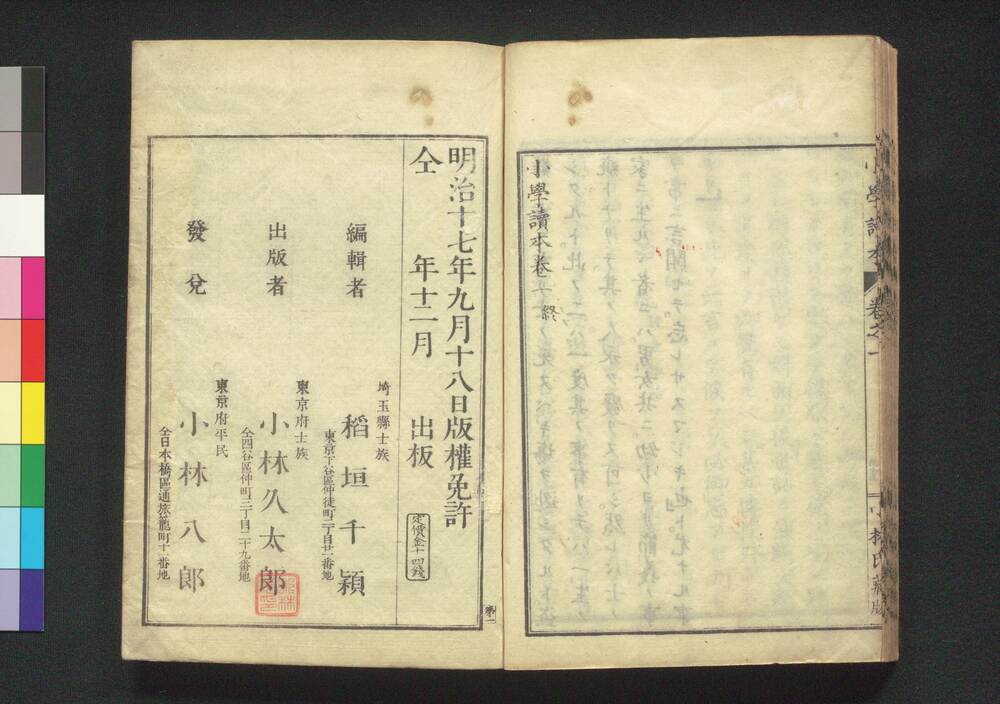 小學讀本卷之一
小林氏藏版
小學讀本卷一終
明治十七年九月十八日版權免許
仝 年十二月 出板
定價金十四錢
埼玉縣士族
編輯者 稻垣千穎
東京下谷區仲徒町二丁目廿一番地
東京府士族
出版者 小林久太郎
仝四谷區仲町三丁目二十九番地
東京府平民
發兌 小林八郎
仝日本橋區通旅籠町十一番地